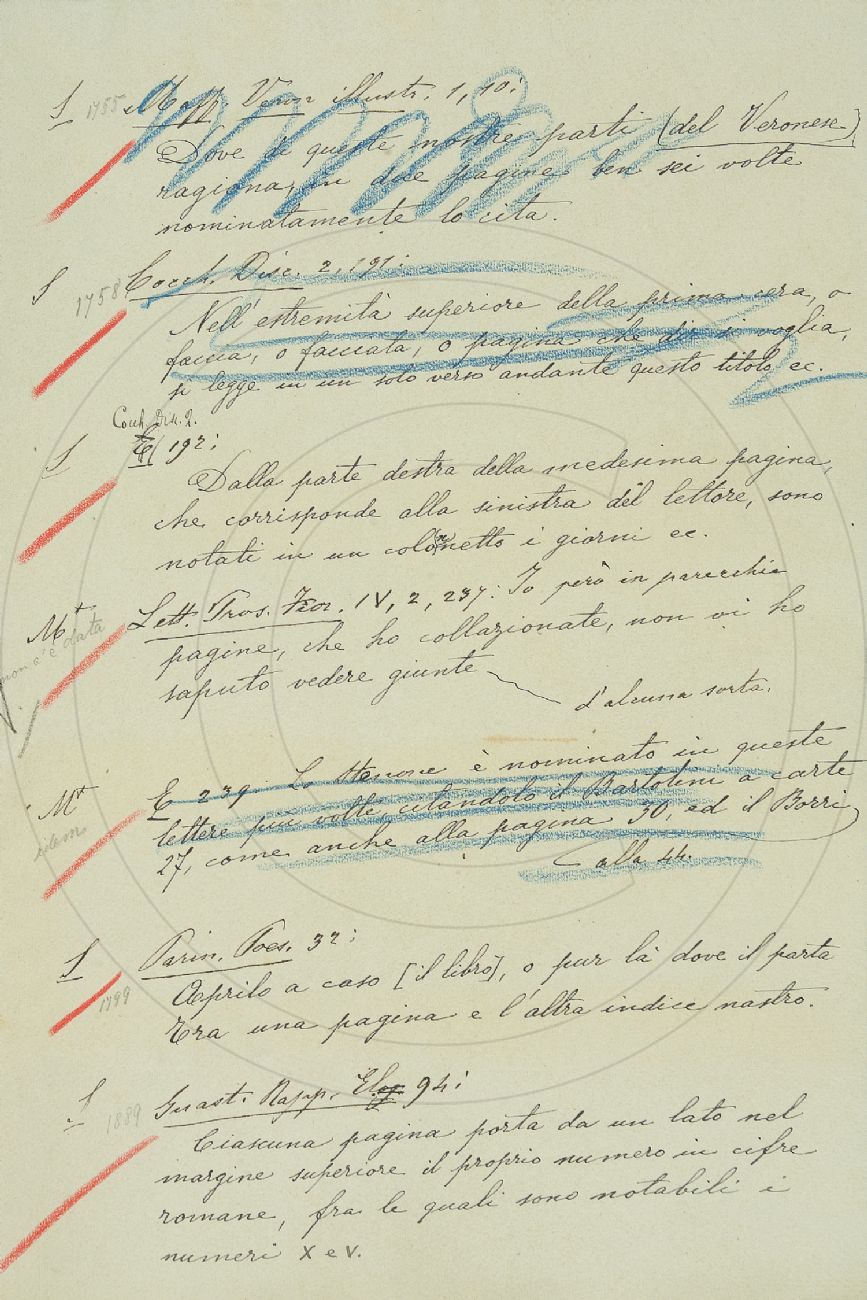 S 1755 Maff. Veron illustr. 1, 10:
Dove di queste nostre parti (del Veronese)
ragiona, in due pagine ben sei volte
nominatamente lo cita.
S 1758 Cocch. Disc. 2, 191:
Nell'estremità superiore della prima cera, o
faccia, o facciata, o pagina che dir si voglia,
si legge in un solo verso andante questo titolo ec.
Cocch. Dis. 2.
S E 192:
Dalla parte destra della medesima pagina,
che corrisponde alla sinistra del lettore, sono
notati in un colonnetto i giorni ec.
Mt Lett. Pros. Fior. IV, 2, 237: Io però in parecchie
non c'è data
pagine, che ho collazionate, non vi ho
saputo vedere giunte
d'alcuna sorta.
Mt E 239. Lo Stenone è nominato in queste
idem
lettere più volte, citandolo il Bartolini a carte
27, come anche alla pagina 30, ed il Borri
alla 44.
S Parin. Poes. 32:
1799
Aprilo a caso [il libro], o pur là dove il parta
Tra una pagina e l'altra indice nastro.
S 1889 Guast. Rapp. 94:
Ciascuna pagina porta da un lato nel
margine superiore il proprio numero in cifre
romane, fra le quali sono notabili i
numeri X e V.